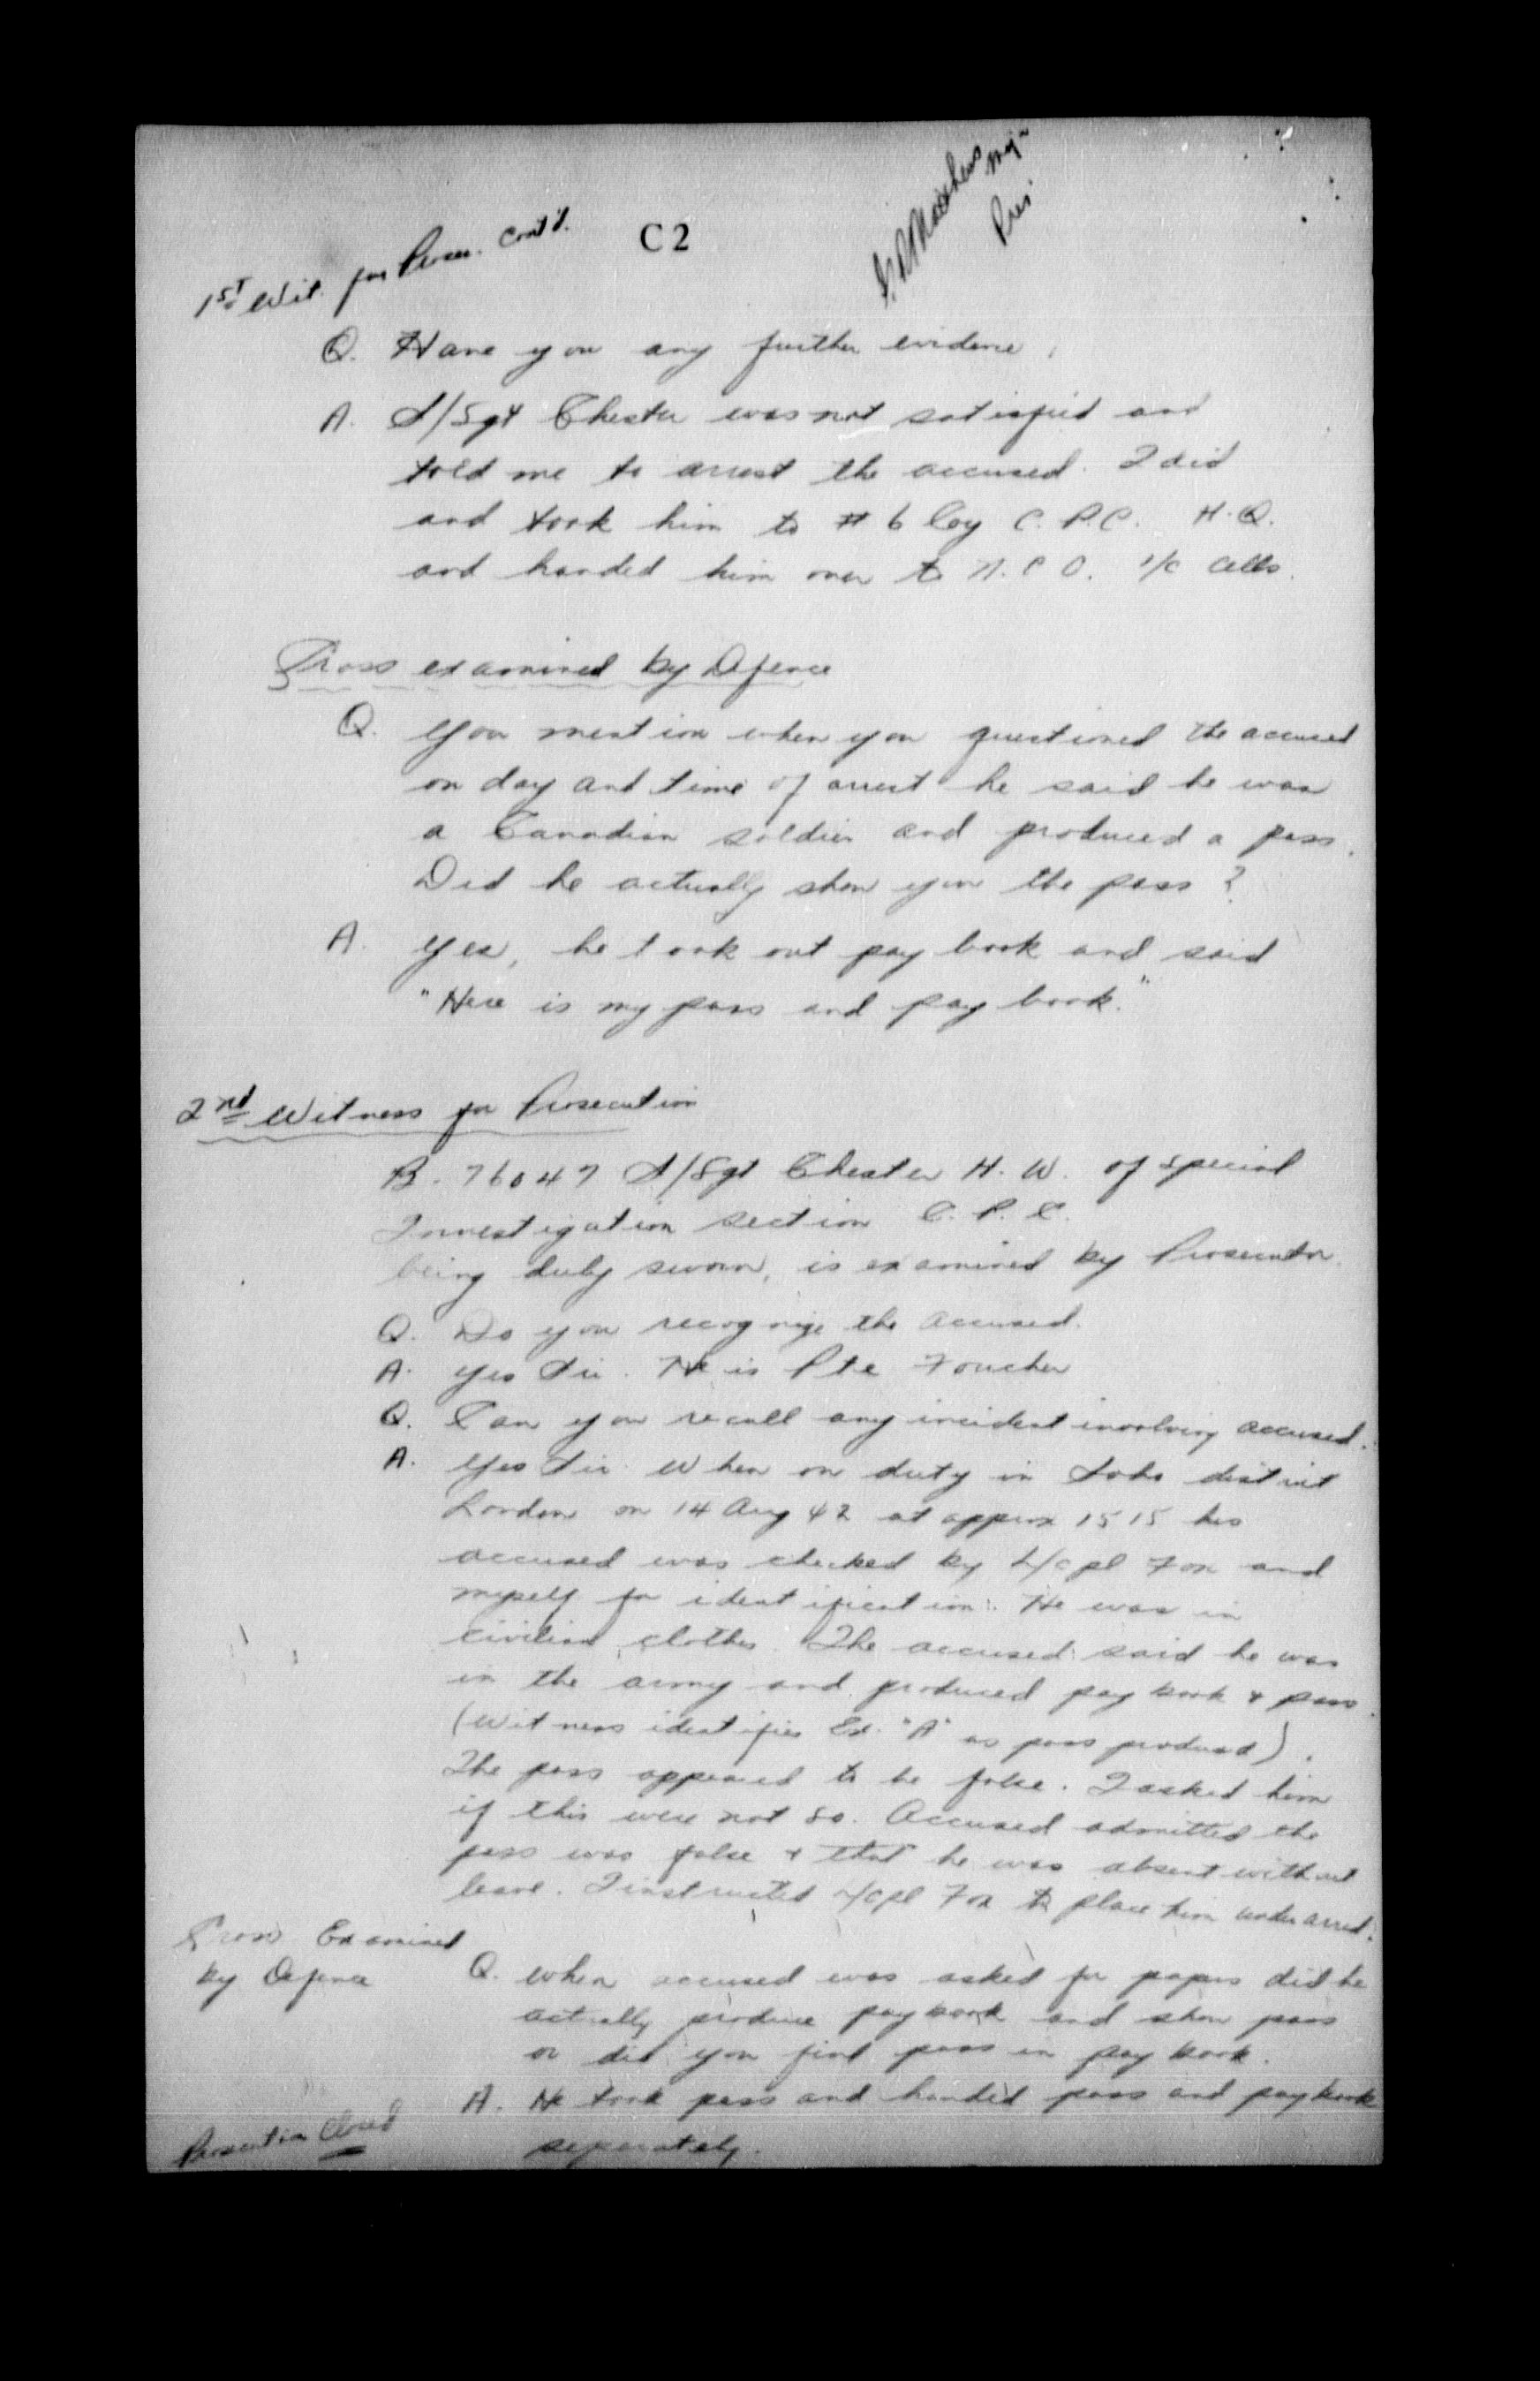 C 2
Matthews Maj
Pres
1st Wit. for Prosec. Cont'd.
Q. Have you any further evidence.
A. S/Sgt Chester was not satisfied and
told me to arrest the accused. I did
and took him to # 6 Coy C.P.C. H.Q.
and handed him over to N.C.O. i/c Cells.
Cross examined by Defence
Q. You mention when you questioned the accused
on day and time of arrest he said he was
a Canadian soldier and produced a pass.
Did he actually show you the pass?
A. Yes, he took out pay book and said
"Here is my pass and pay book."
2nd Witness for Prosecution
B. 76047 S/Sgt Chester H. W. of special
Investigation section C. P. C.
being duly sworn, is examined by Prosecutor.
Q. Do you recognize the accused.
A. Yes Sir. He is Pte Foucher
Q. Can you recall any incident involving accused.
A. Yes Sir. When on duty in Soho district
London on 14 Aug 42 at approx 1515 hrs
accused was checked by L/Cpl Fox and
myself for identification. He was in
civilian clothes. The accused said he was
in the army and produced pay book & pass.
(Witness identifies Ex. "A" as pass produced).
The pass appeared to be false. I asked him
if this were not so. Accused admitted the
pass was false & that he was absent without
leave. I instructed L/Cpl Fox to place him under arrest.
Cross Examined
by Defence
Q. When accused was asked for papers did he
actually produce paybook and show pass
or did you find pass in pay book.
A. He took pass and handed pass and paybook
separately.
Prosecution Closed